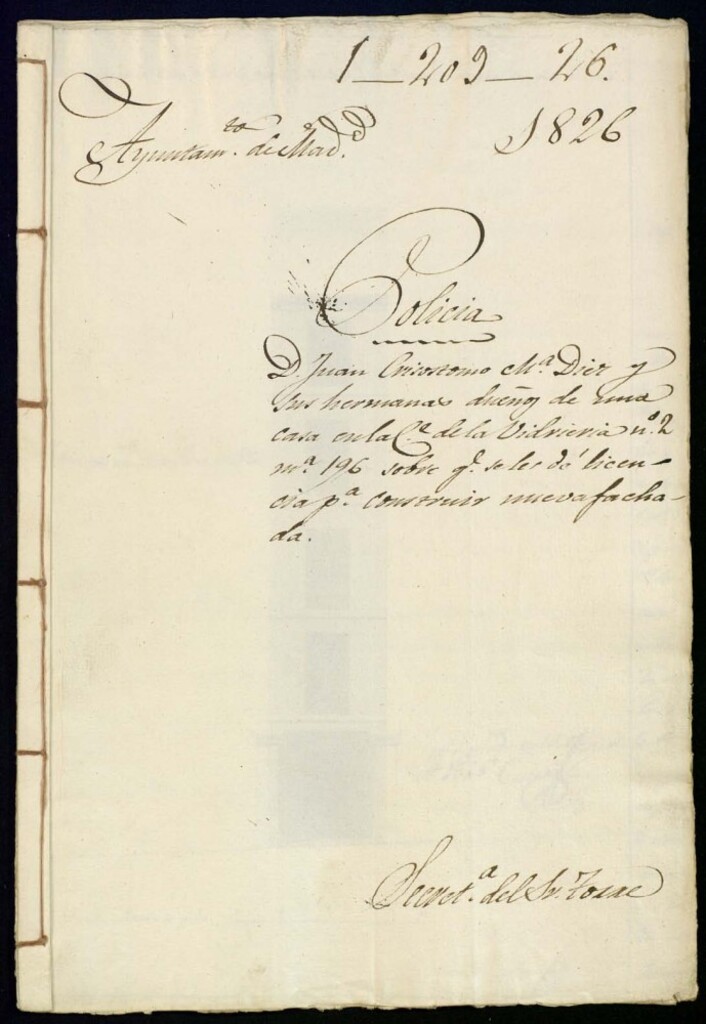 1 — 209 — 26.
Ayuntam.to de Mad.d
1826
Policia
D. Juan Crisostomo M.a Diez y
sus hermanas dueños de una
casa en la C.e de la Vidrieria n.o 2
m.a 196 sobre q.e se les dé licen-
cia p.a construir nueva facha-
da.
Secret.a del Sr. Torre